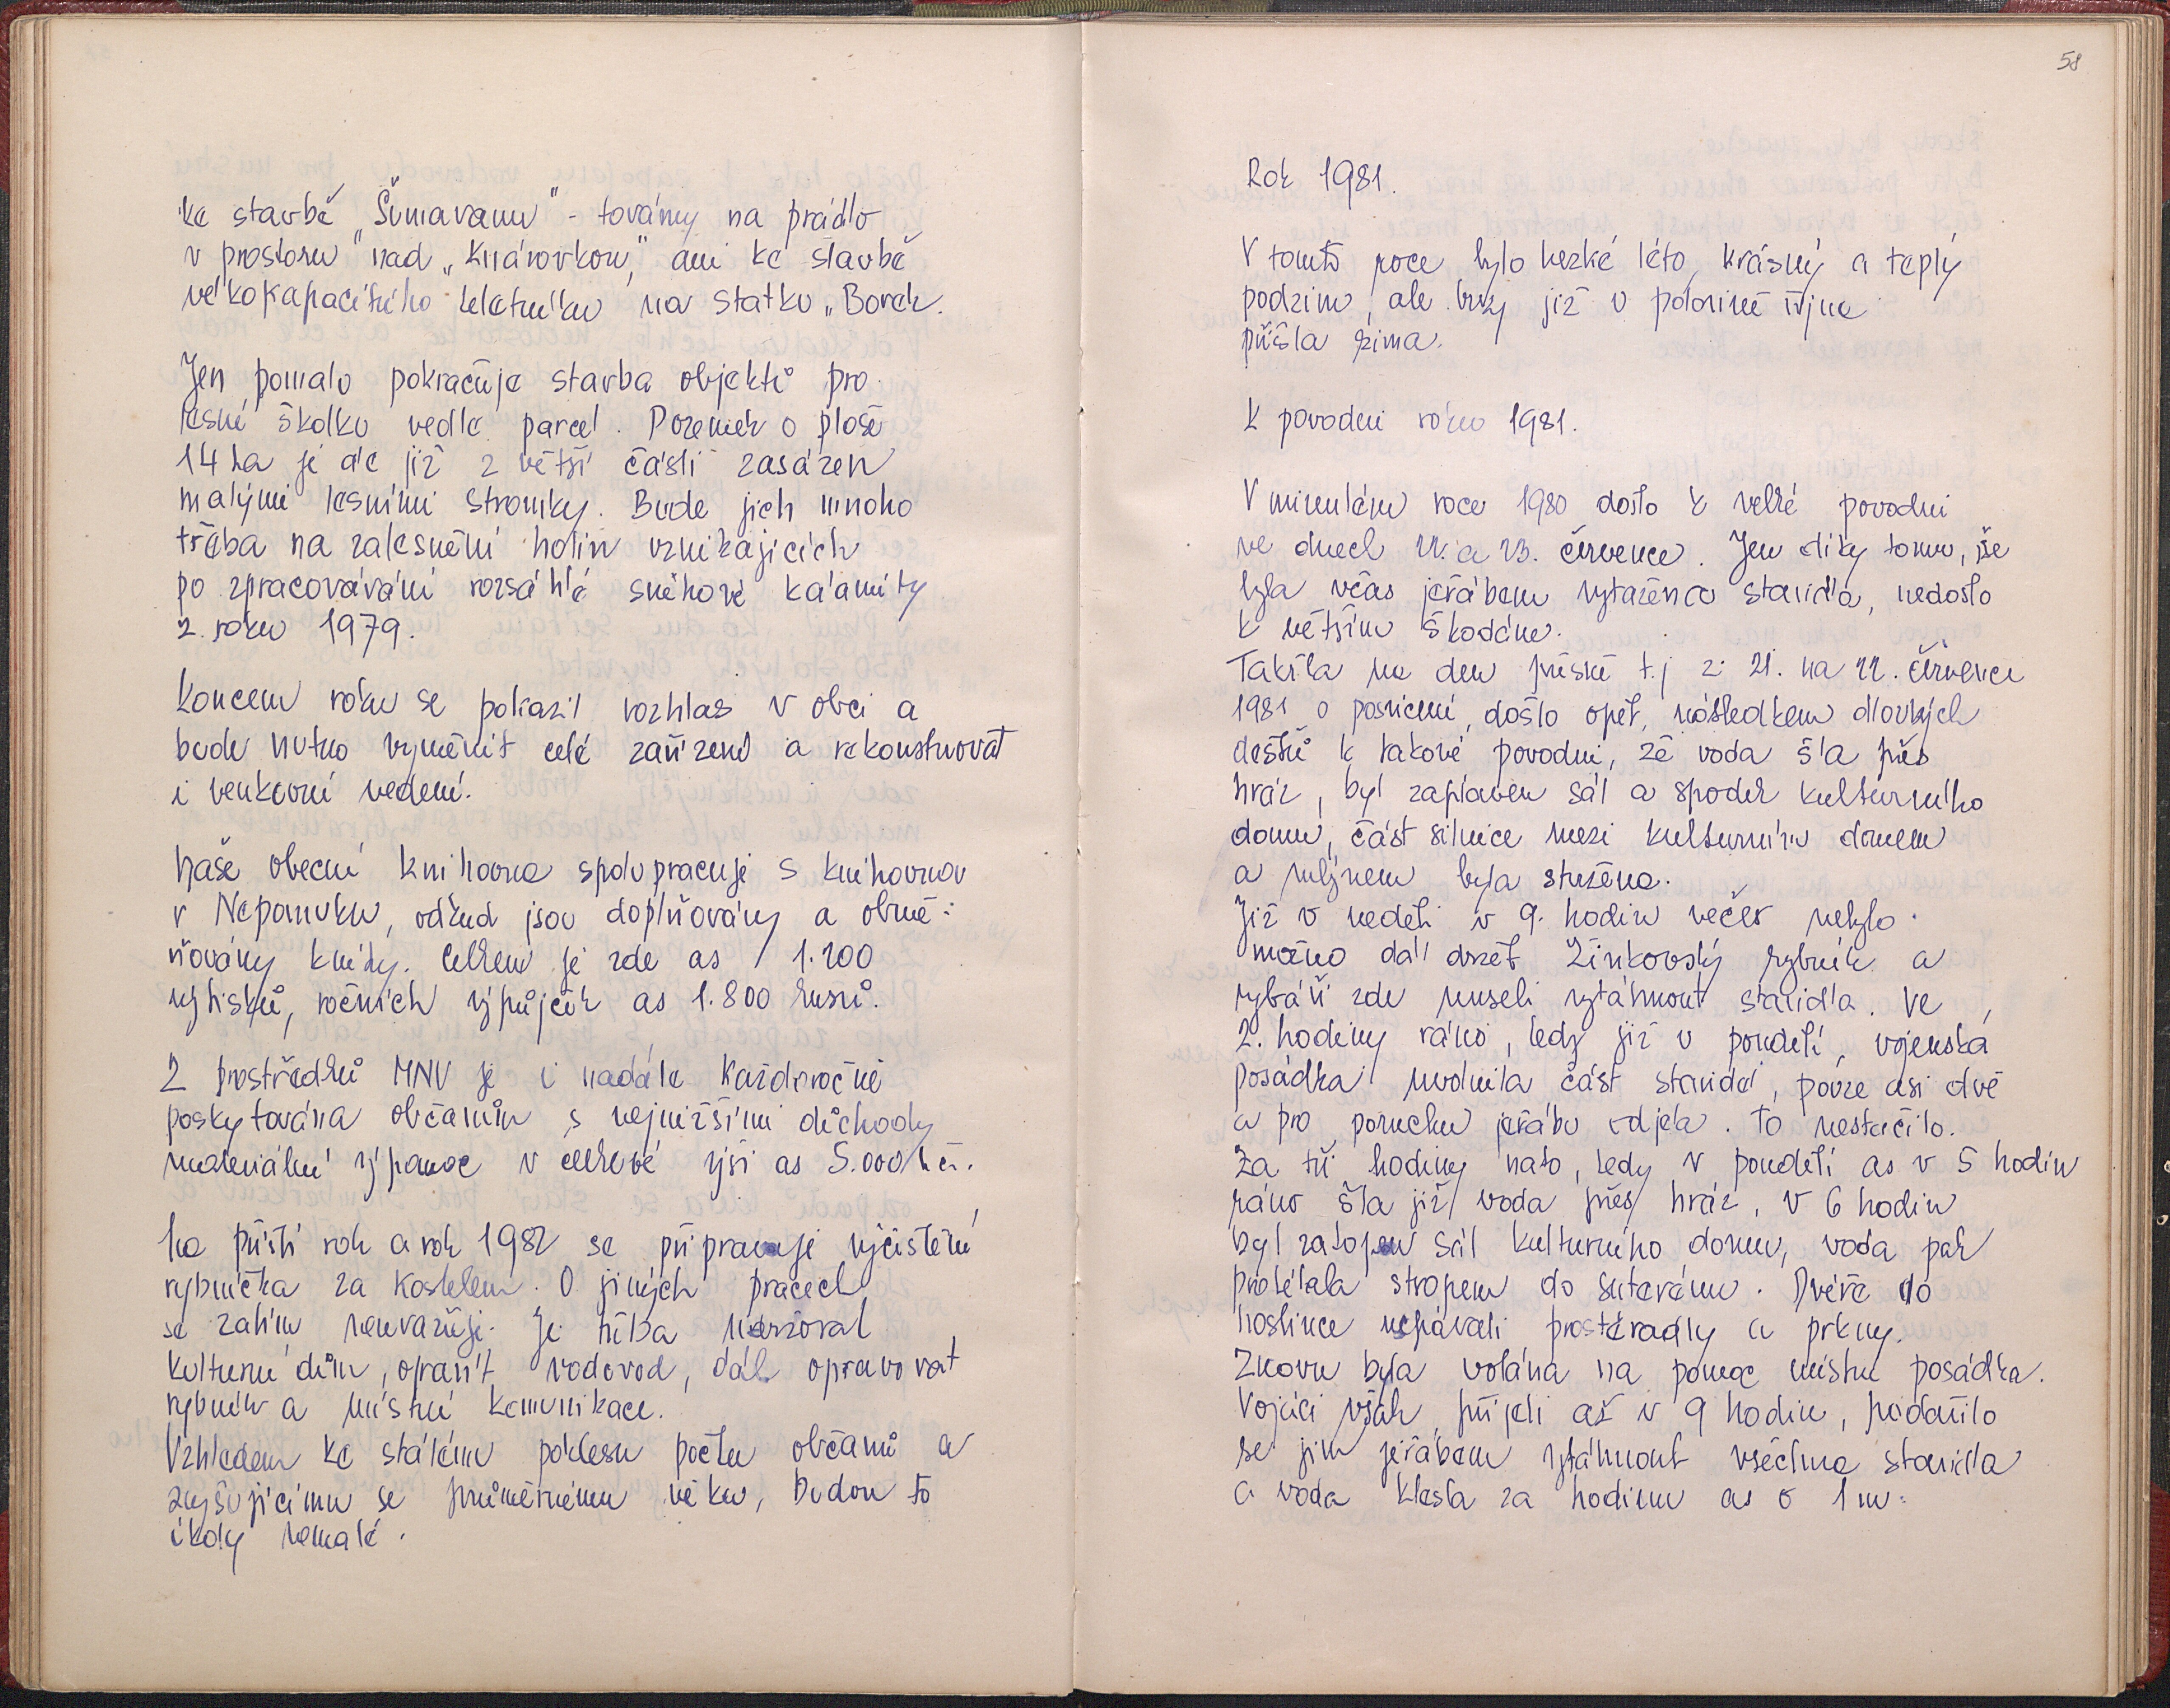 ke stavbě „Šumavanu" - továrny na prádlo
v prostoru nad „Knárovkou," ani ke stavbě
velkokapacitního teletníku na statku „Borek.
Jen pomalu pokračuje stavba objektů pro
lesní školku vedle parcel. Pozemek o ploše
14 ha je ale již z větší části zasázen
malými lesními stromky. Bude jich mnoho
třeba na zalesnění holin vznikajících
po zpracovávání rozsáhlé sněhové kalamity
z roku 1979.
Koncem roku se pokazil rozhlas v obci a
bude nutno vyměnit celé zařízení a rekonstruovat
i venkovní vedení.
Naše obecní knihovna spolupracuje s knihovnou
v Nepomuku, odkud jsou doplňovány a obmě-
ňovány knihy. Celkem je zde as 1.200
výtisků, ročních výpůjček as 1.800 kusů.
Z prostředků MNV je i nadále každoročně
poskytována občanům s nejnižšími důchody
materiální výpomoc v celkové výši as 5.000 kčs.
Na příští rok a rok 1982 se připravuje vyčištění
rybníčka za kostelem. O jiných pracech
se zatím neuvažuje. Je třeba udržovat
kulturní dům, opravit vodovod, dál opravovat
rybník a místní komunikace.
Vzhledem ke stálému poklesu počtu občanů a
zvyšujícímu se průměrnému věku, budou to
úkoly nemalé.
58
Rok 1981.
V tomto roce bylo hezké léto, krásný a teplý
podzim, ale brzy již v polovině října
přišla zima.
K povodni roku 1981.
V minulém roce 1980 došlo k velké povodni
ve dnech 22. a 23. července. Jen díky tomu, že
byla včas jeřábem vytažena stavidla, nedošlo
k větším škodám.
Takřka na den přesně t.j z 21. na 22. července
1981 o posvícení, došlo opět, následkem dlouhých
dešťů k takové povodni, že voda šla přes
hráz, byl zaplaven sál a spodek kulturního
domu, část silnice mezi kulturním domem
a mlýnem byla stržena.
Již v neděli v 9. hodin večer nebylo
možno dál držet Žinkovský rybník a
rybáři zde museli vytáhnout stavidla. Ve
2. hodiny ráno, tedy již v pondělí, vojenská
posádka uvolnila část stavidel, pouze asi dvě
a pro poruchu jeřábu odjela. To nestačilo.
Za tři hodiny nato, tedy v pondělí as v 5 hodin
ráno šla již voda přes hráz, v 6 hodin
byl zatopen sál kulturního domu, voda pak
protékala stropem do suterénu. Dveře do
hostince ucpávali prostěradly a prkny.
Znovu byla volána na pomoc místní posádka.
Vojáci však přijeli až v 9 hodin, podařilo
se jim jeřábem vytáhnout všechna stavidla
a voda klesla za hodinu as o 1 m.